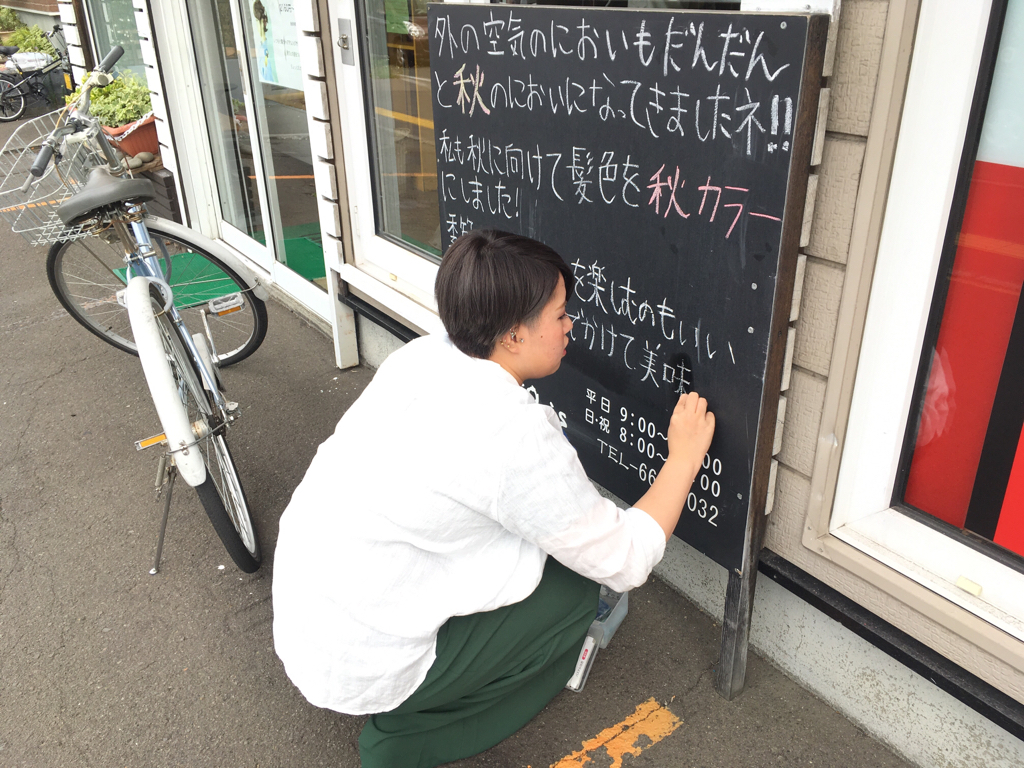 外の空気のにおいもだんだん
と秋のにおいになってきましたネ!!
私も秋に向けて髪色を秋カラー
にしました!
を楽しむのもいい
かけて美味
平日 9:00~ :00
日・祝 8:00~ :00
TEL-66 032